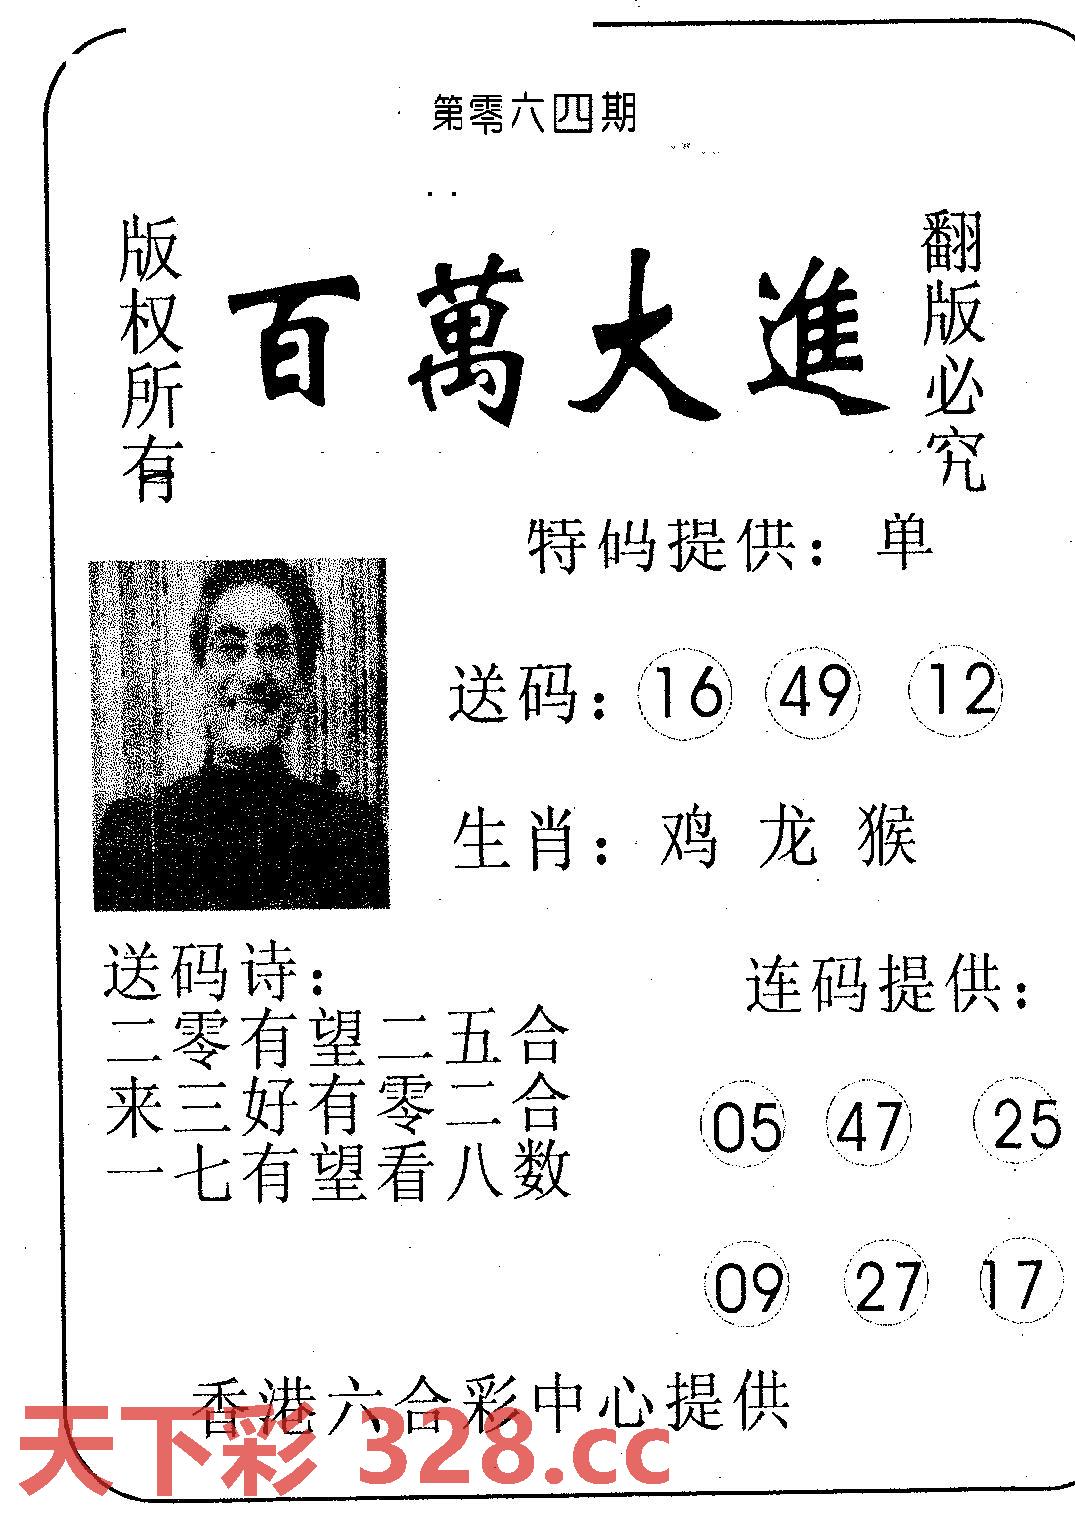 第零六四期
版权所有
百萬大進
翻版必究
特码提供：单
送码：16 49 12
生肖：鸡 龙 猴
送码诗：
二零有望二五合
来三好有零二合
一七有望看八数
连码提供：
05 47 25
09 27 17
香港六合彩中心提供
天下彩 328.cc